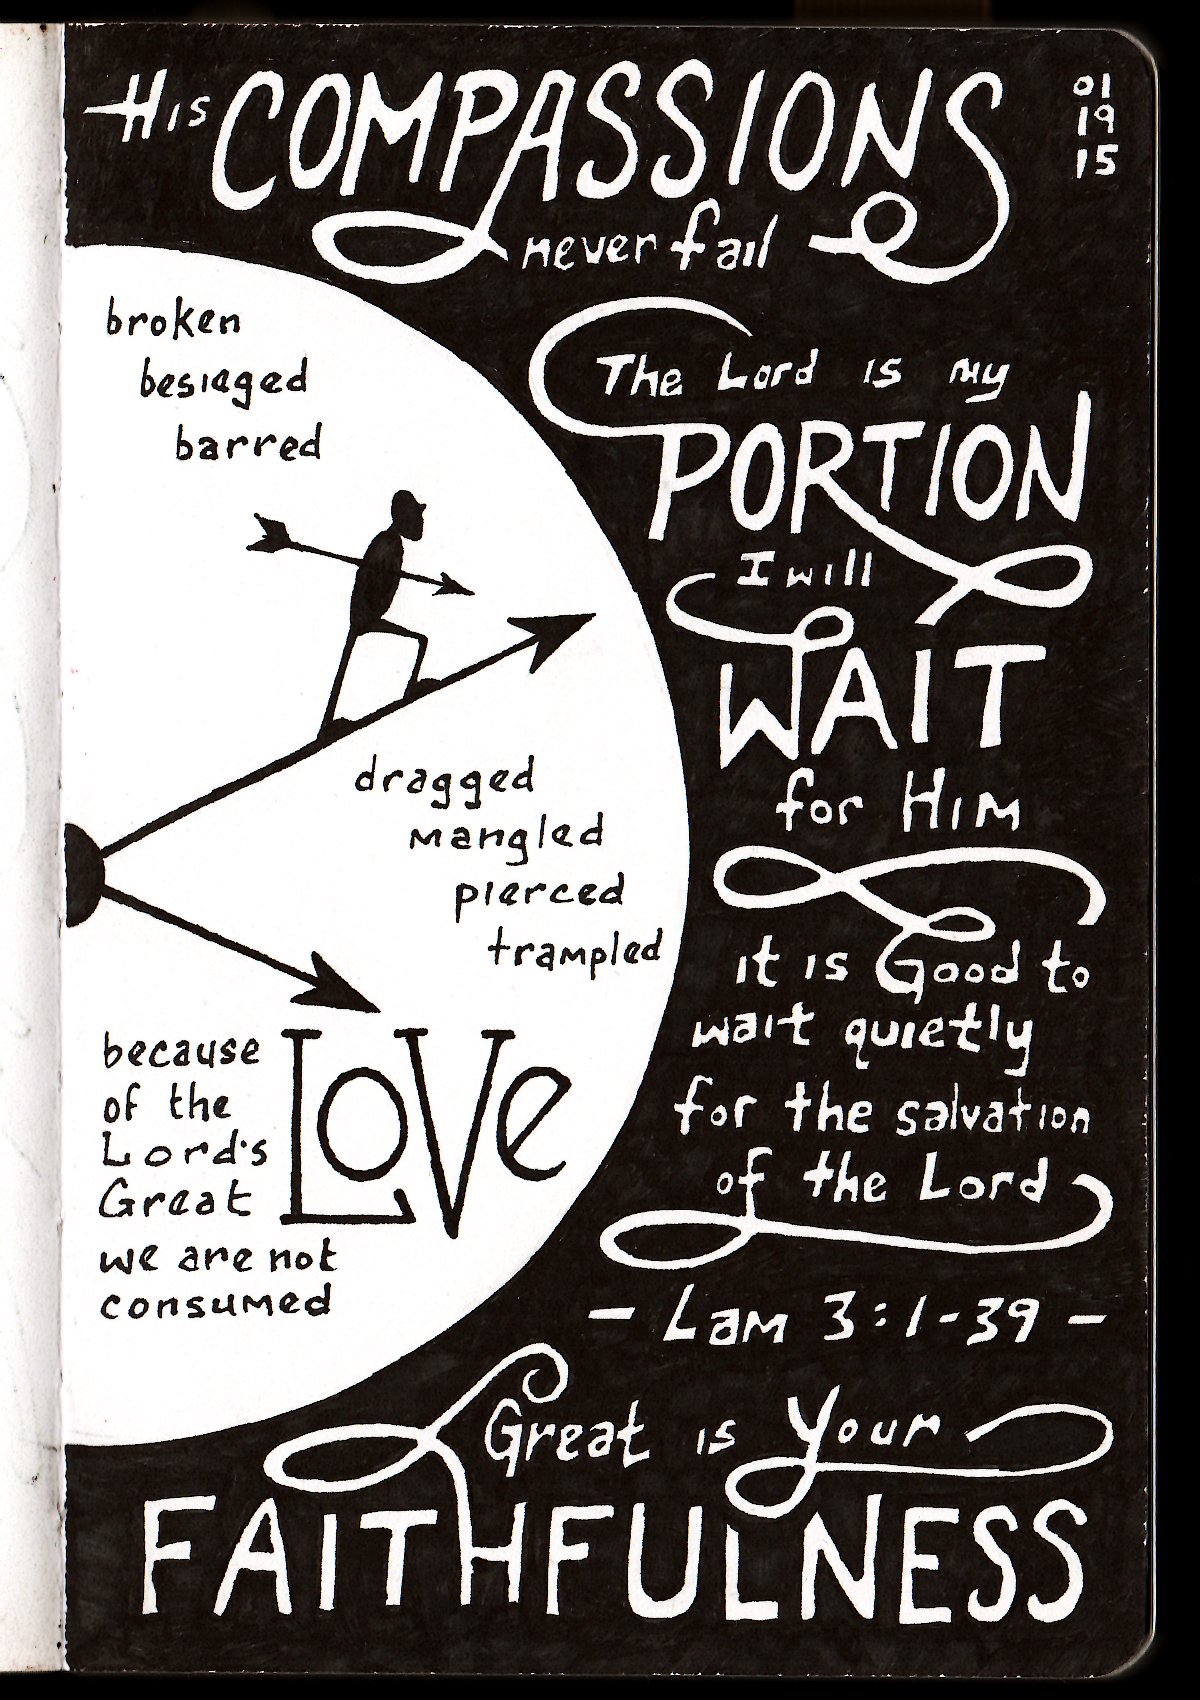 His COMPASSIONS
never fail
01
19
15
broken
besieged
barred
dragged
mangled
pierced
trampled
because
of the
Lord's
Great
LOVe
we are not
consumed
The Lord is my
PORTION
I will
WAIT
for HIM
it is Good to
wait quietly
for the salvation
of the Lord
- Lam 3:1-39 -
Great is Your
FAITHFULNESS